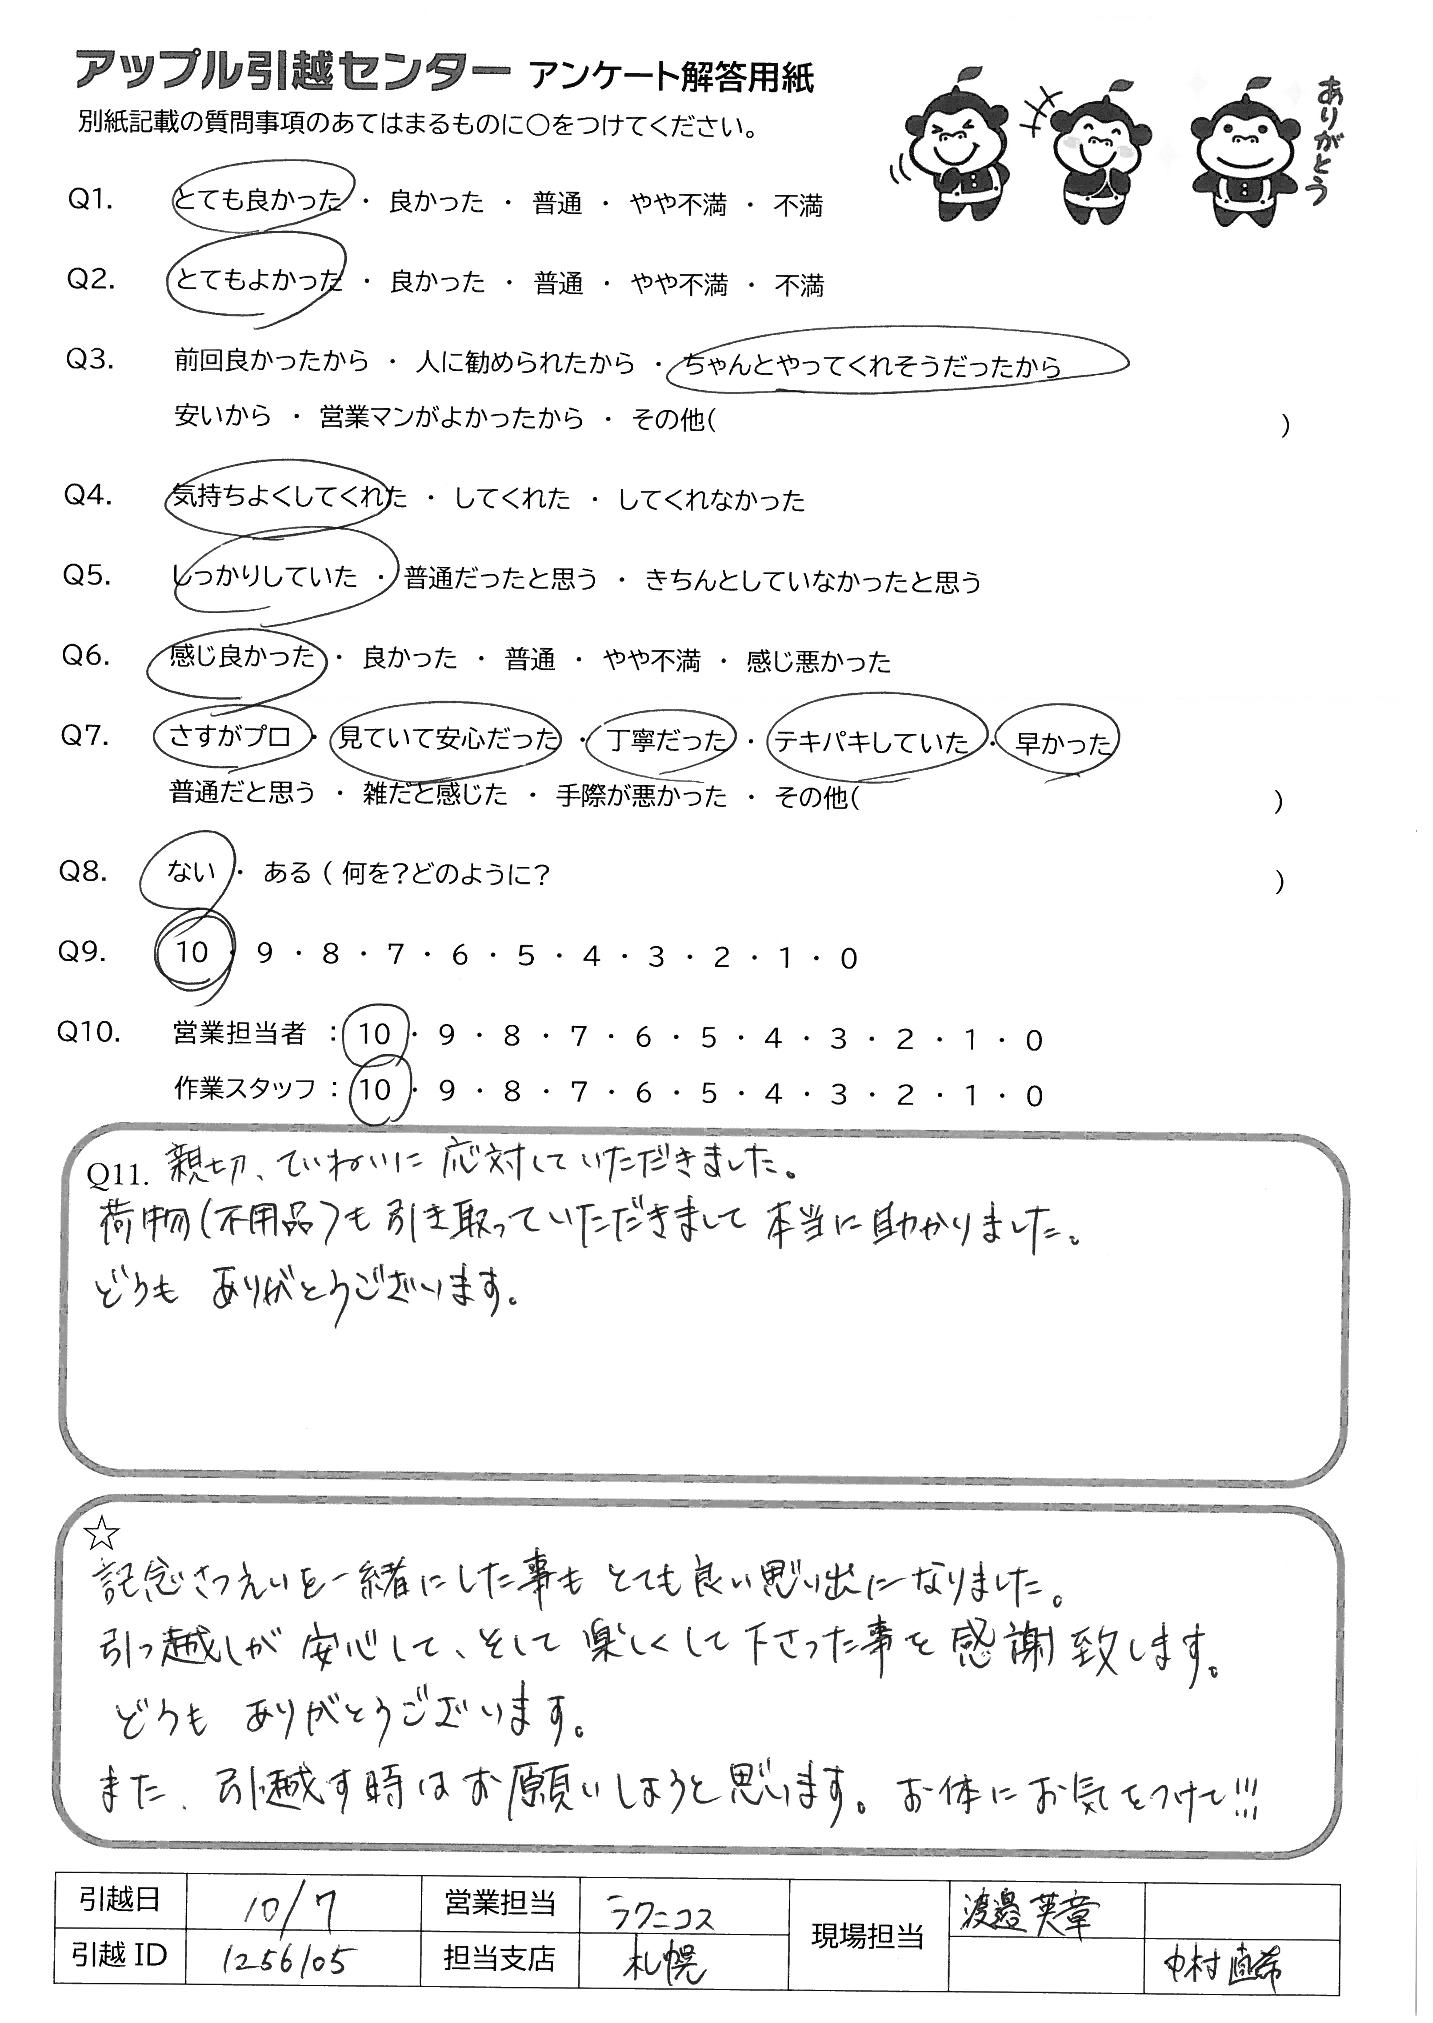 アップル引越センター アンケート解答用紙
ありがとう
別紙記載の質問事項のあてはまるものに○をつけてください。
Q1. とても良かった ・ 良かった ・ 普通 ・ やや不満 ・ 不満
Q2. とてもよかった ・ 良かった ・ 普通 ・ やや不満 ・ 不満
Q3. 前回良かったから ・ 人に勧められたから ・ ちゃんとやってくれそうだったから
安いから ・ 営業マンがよかったから ・ その他( )
Q4. 気持ちよくしてくれた ・ してくれた ・ してくれなかった
Q5. しっかりしていた ・ 普通だったと思う ・ きちんとしていなかったと思う
Q6. 感じ良かった ・ 良かった ・ 普通 ・ やや不満 ・ 感じ悪かった
Q7. さすがプロ ・ 見ていて安心だった ・ 丁寧だった ・ テキパキしていた ・ 早かった
普通だと思う ・ 雑だと感じた ・ 手際が悪かった ・ その他( )
Q8. ない ・ ある ( 何を?どのように? )
Q9. 10 ・ 9 ・ 8 ・ 7 ・ 6 ・ 5 ・ 4 ・ 3 ・ 2 ・ 1 ・ 0
Q10. 営業担当者 : 10 ・ 9 ・ 8 ・ 7 ・ 6 ・ 5 ・ 4 ・ 3 ・ 2 ・ 1 ・ 0
作業スタッフ : 10 ・ 9 ・ 8 ・ 7 ・ 6 ・ 5 ・ 4 ・ 3 ・ 2 ・ 1 ・ 0
Q11. 親切、ていねいに 応対していただきました。
荷物(不用品)も引き取っていただきまして 本当に助かりました。
どうも ありがとうございます。
☆
記念さつえいを一緒にした事も とても良い思い出になりました。
引っ越しが 安心して、そして 楽しくして下さった事を感謝致します。
どうも ありがとうございます。
また、引越す時はお願いしようと思います。お体にお気をつけて!!!
引越日 10/7 営業担当 ラクニコス 現場担当 渡邉英章
引越ID 1256105 担当支店 札幌 中村直希